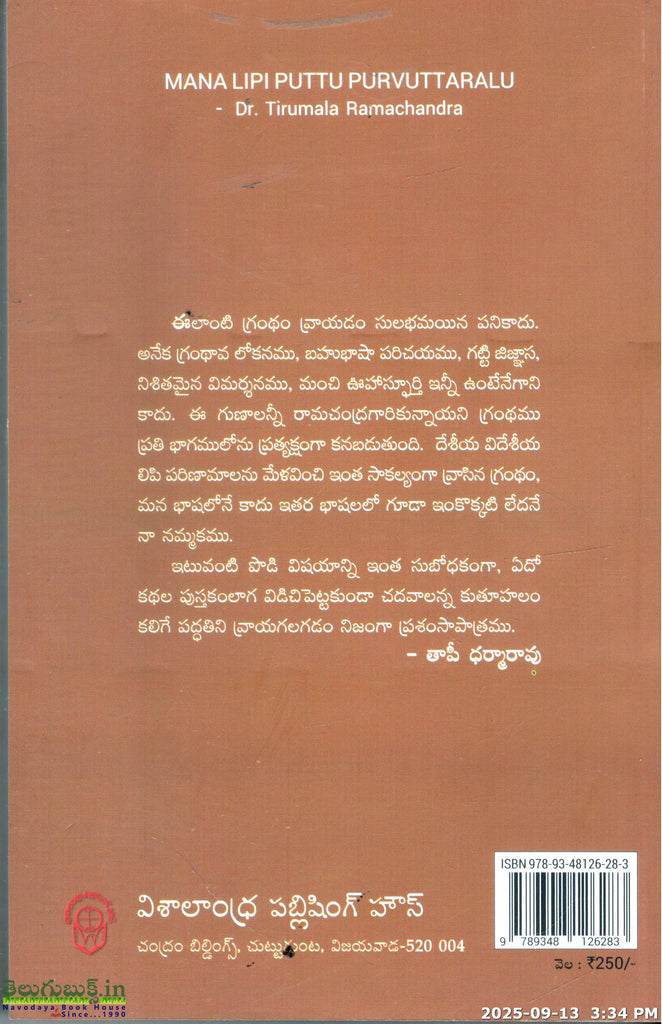 MANA LIPI PUTTU PURVUTTARALU
- Dr. Tirumala Ramachandra
ఈలాంటి గ్రంథం వ్రాయడం సులభమయిన పనికాదు.
అనేక గ్రంథావ లోకనము, బహుభాషా పరిచయము, గట్టి జిజ్ఞాస,
నిశితమైన విమర్శనము, మంచి ఊహాస్ఫూర్తి ఇన్నీ ఉంటేనేగాని
కాదు. ఈ గుణాలన్నీ రామచంద్రగారికున్నాయని గ్రంథము
ప్రతి భాగములోను ప్రత్యక్షంగా కనబడుతుంది. దేశీయ విదేశీయ
లిపి పరిణామాలను మేళవించి ఇంత సాకల్యంగా వ్రాసిన గ్రంథం,
మన భాషలోనే కాదు ఇతర భాషలలో గూడా ఇంకొక్కటి లేదనే
నా నమ్మకము.
ఇటువంటి పొడి విషయాన్ని ఇంత సుబోధకంగా, ఏదో
కథల పుస్తకంలాగ విడిచిపెట్టకుండా చదవాలన్న కుతూహలం
కలిగే పద్ధతిని వ్రాయగలగడం నిజంగా ప్రశంసాపాత్రము.
- తాపీ ధర్మారావు
ISBN 978-93-48126-28-3
9 789348 126283
వెల : ₹250/-
విశాలాంధ్ర పబ్లిషింగ్ హౌస్
చంద్రం బిల్డింగ్స్, చుట్టుగుంట, విజయవాడ-520 004
తెలుగుబుక్స్.in
Navodaya Book House
Since...1990
2025-09-13 3:34 PM